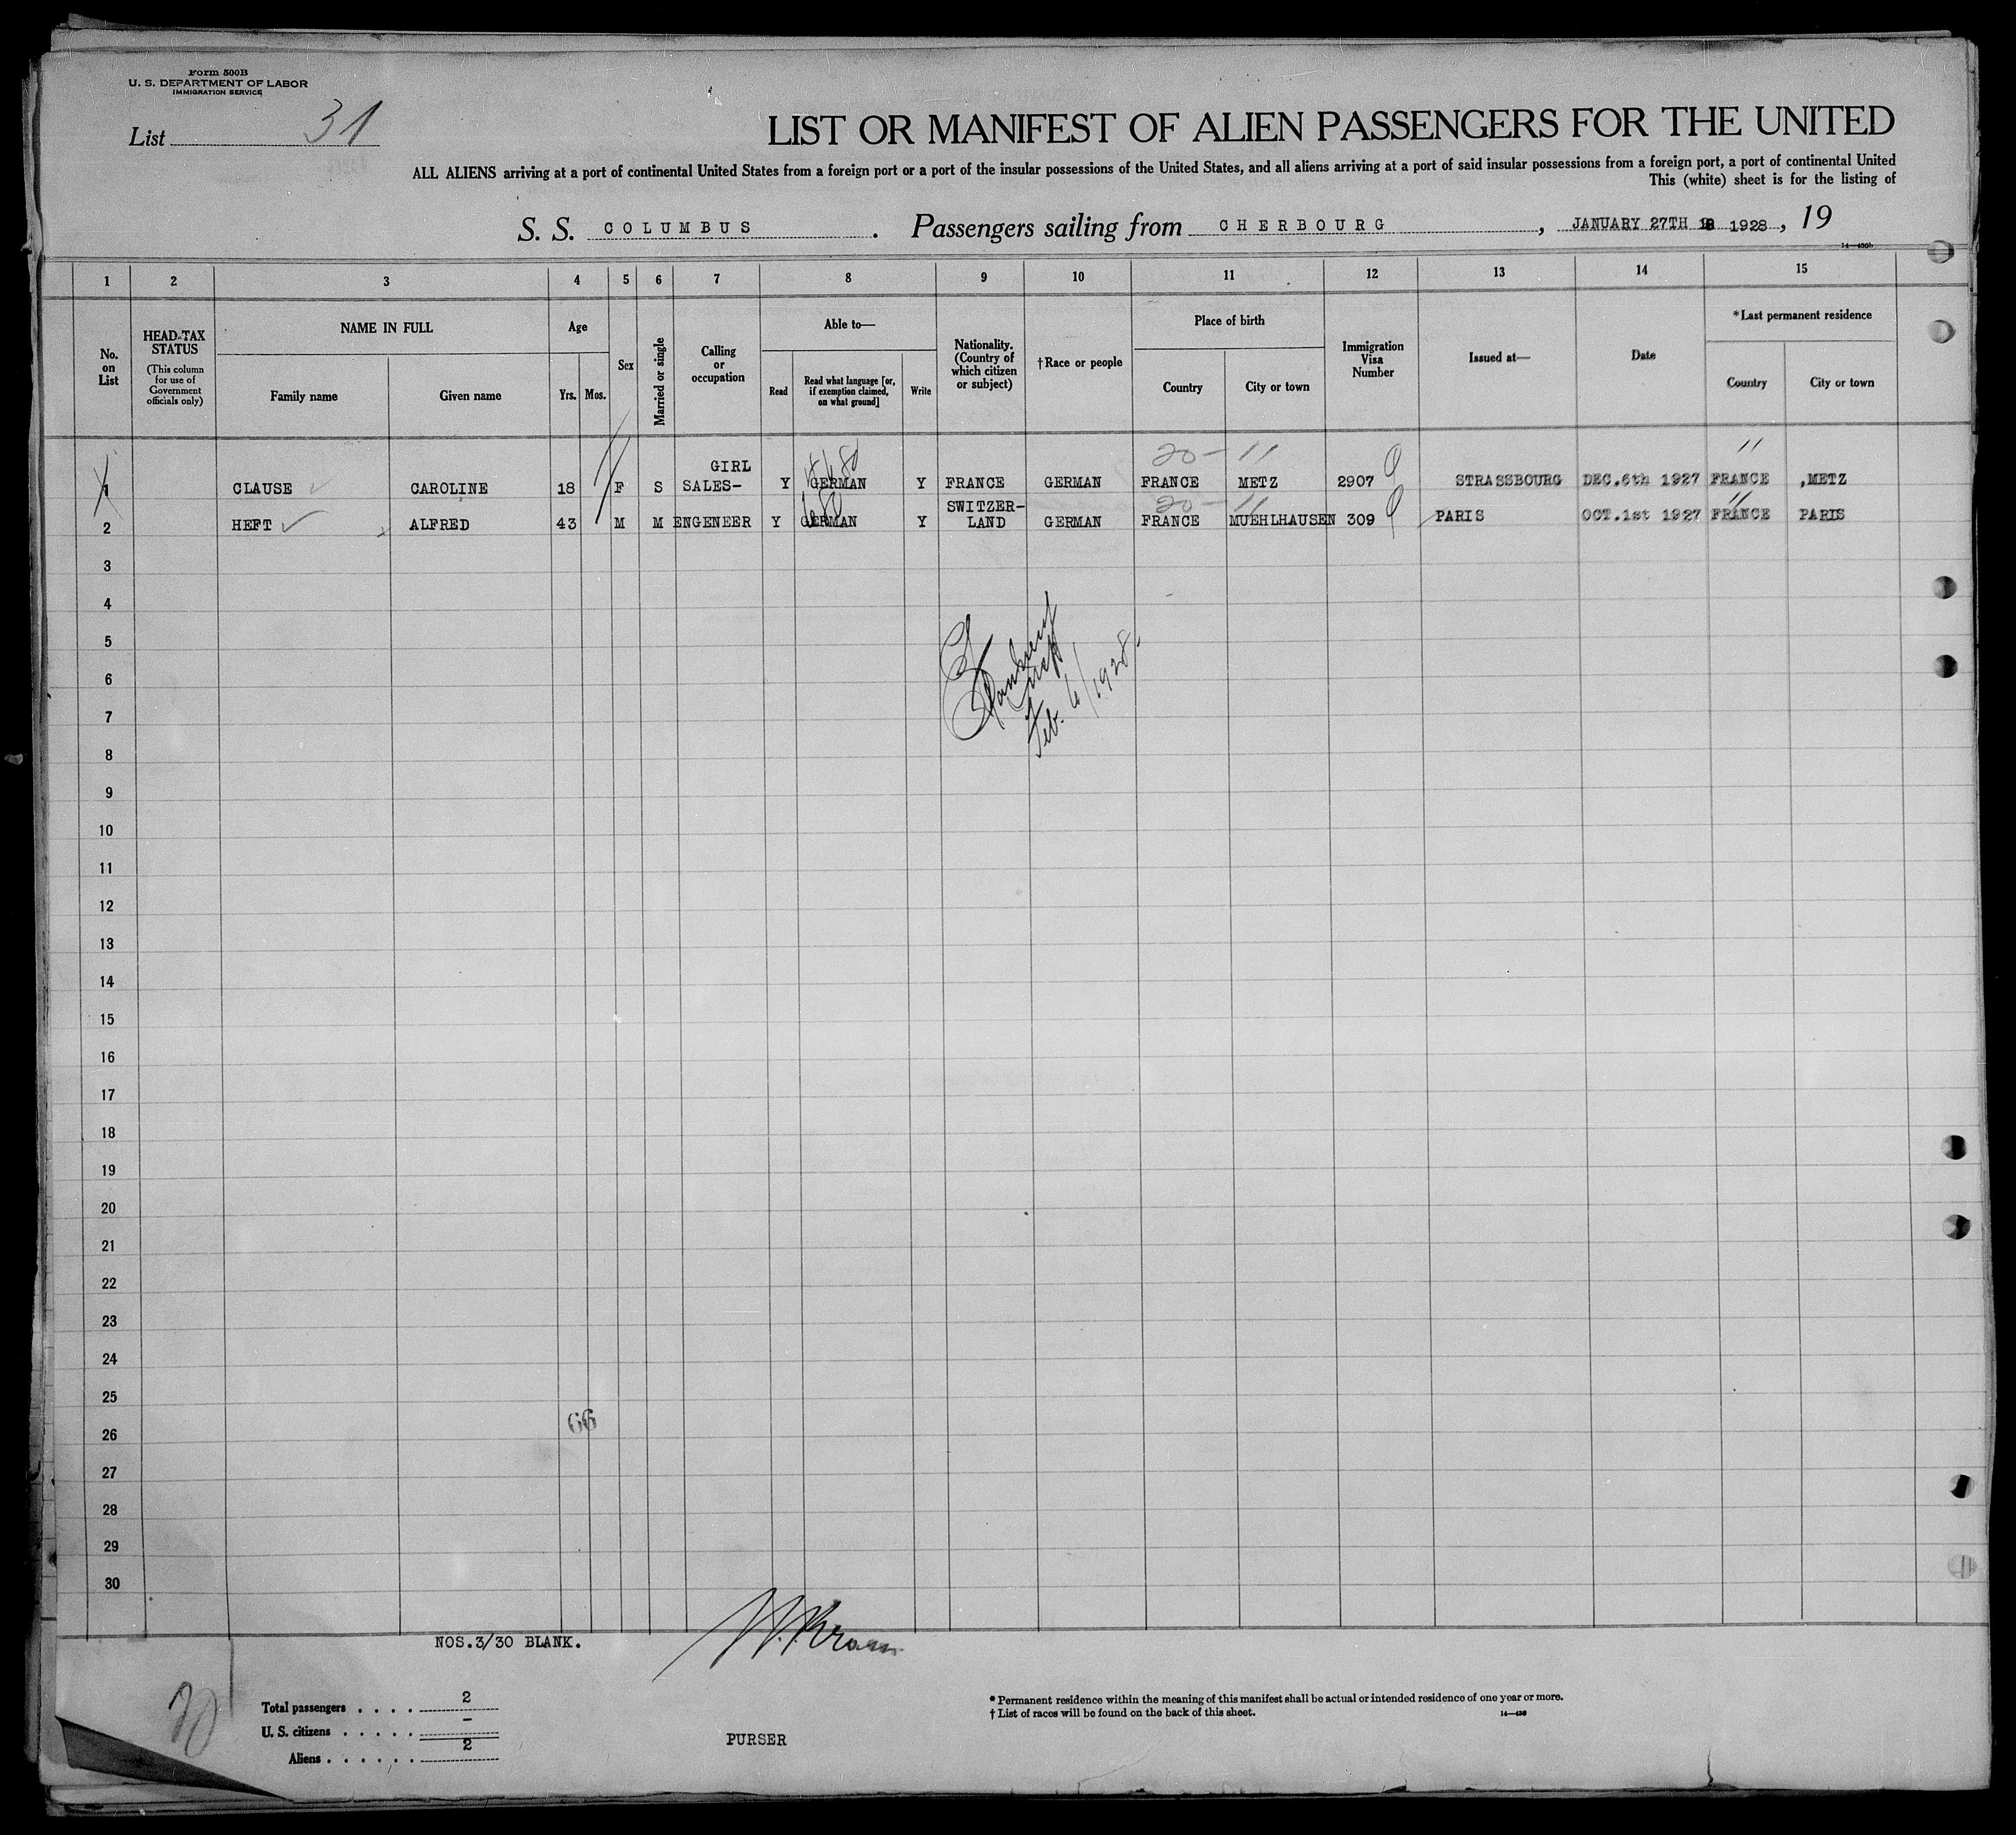 Form 500B
U. S. DEPARTMENT OF LABOR
IMMIGRATION SERVICE
List 31
LIST OR MANIFEST OF ALIEN PASSENGERS FOR THE UNITED
ALL ALIENS arriving at a port of continental United States from a foreign port or a port of the insular possessions of the United States, and all aliens arriving at a port of said insular possessions from a foreign port, a port of continental United
This (white) sheet is for the listing of
S. S. COLUMBUS. Passengers sailing from CHERBOURG, JANUARY 27TH 1928, 19
1 2 3 4 5 6 7 8 9 10 11 12 13 14 15
No. on List
HEAD-TAX STATUS
(This column for use of Government officials only)
NAME IN FULL
Family name
Given name
Age
Yrs. Mos.
Sex
Married or single
Calling or occupation
Able to—
Read
Read what language [or, if exemption claimed, on what ground]
Write
Nationality. (Country of which citizen or subject)
†Race or people
Place of birth
Country
City or town
Immigration Visa Number
Issued at—
Date
*Last permanent residence
Country
City or town
20 - 11 11
GIRL
1 CLAUSE CAROLINE 18 F S SALES- Y GERMAN Y FRANCE GERMAN FRANCE METZ 2907 STRASSBOURG DEC.6th 1927 FRANCE ,METZ
SWITZER- 20 - 11 11
2 HEFT ALFRED 43 M M ENGENEER Y GERMAN Y LAND GERMAN FRANCE MUEHLHAUSEN 309 PARIS OCT.1st 1927 FRANCE PARIS
3
4
5
6
Feb. 6/1928.
7
8
9
10
11
12
13
14
15
16
17
18
19
20
21
22
23
24
25
66
26
27
28
29
30
NOS.3/30 BLANK.
Total passengers . . . . 2
U. S. citizens . . . . . -
Aliens . . . . . . 2
PURSER
* Permanent residence within the meaning of this manifest shall be actual or intended residence of one year or more.
† List of races will be found on the back of this sheet.
14—430